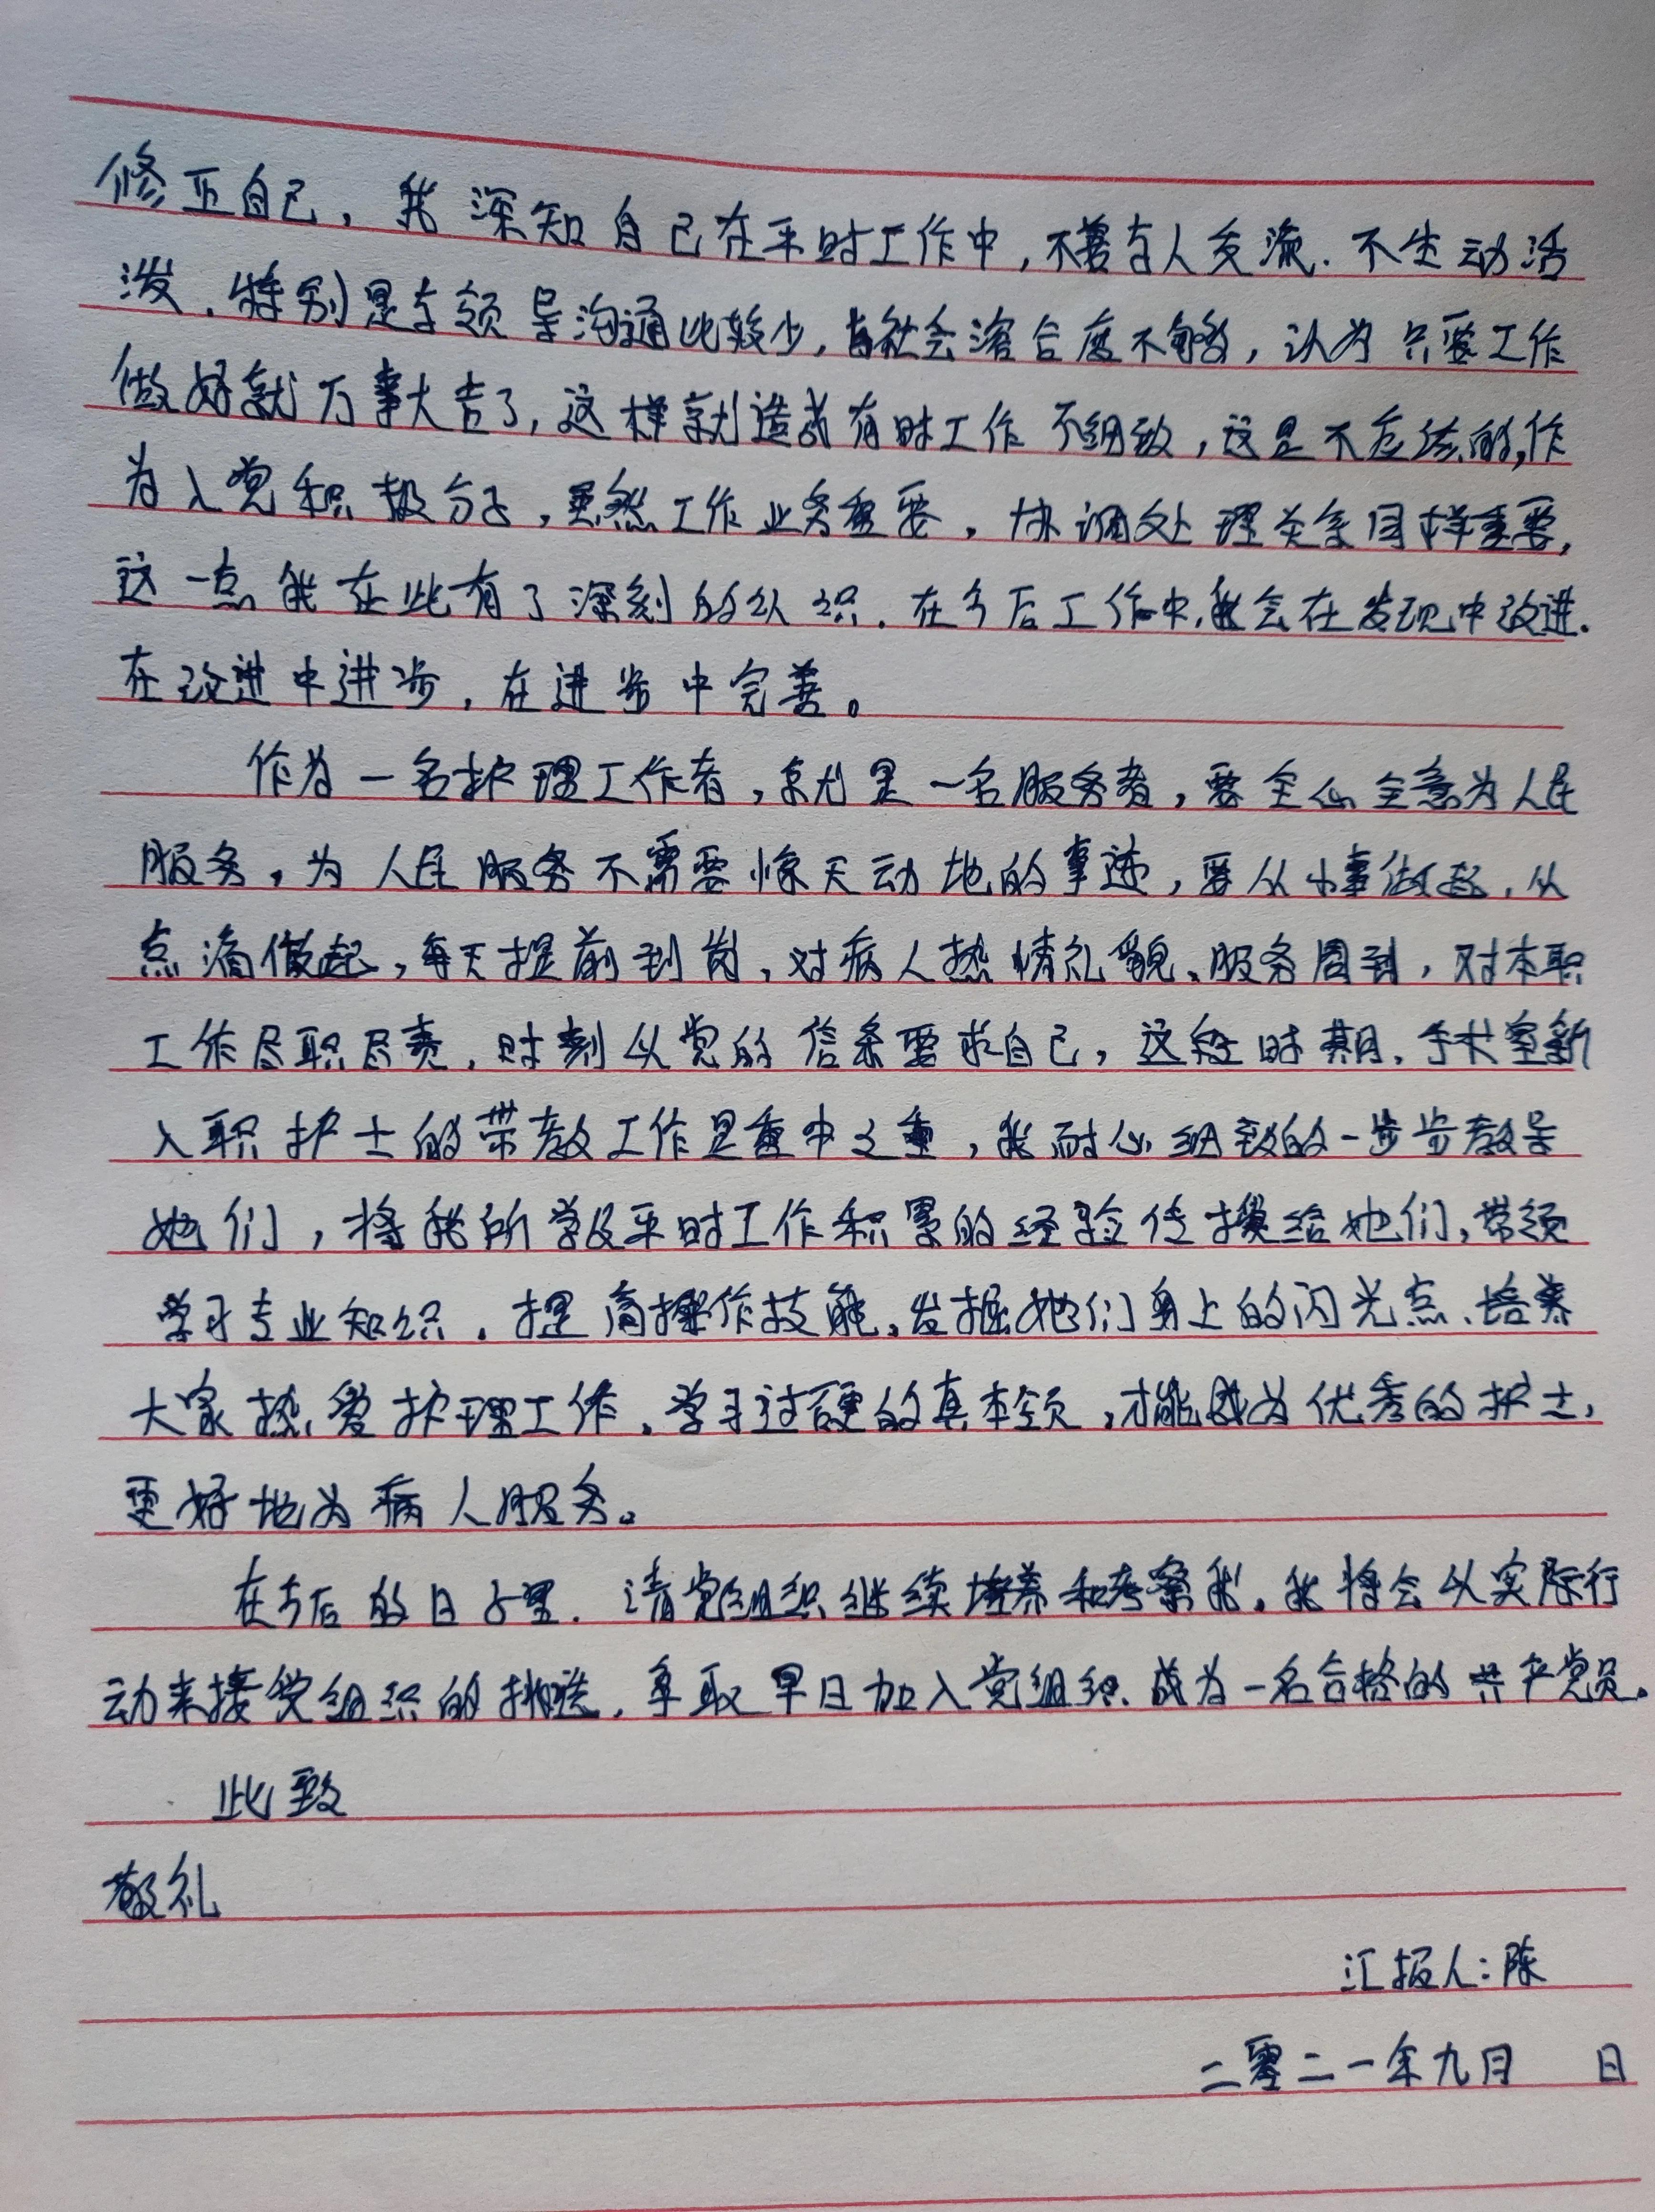 修正自己，我深知自己在平时工作中，不善与人交流．不生动活
泼．特别是与领导沟通比较少，与社会溶合度不够，认为只要工作
做好就万事大吉了，这样就造成有时工作不细致，这是不应该的，作
为入党积极分子，虽然工作业务重要，协调处理关系同样重要，
这一点我在此有了深刻的认识．在今后工作中，我会在发现中改进．
在改进中进步，在进步中完善。
作为一名护理工作者，就是一名服务者，要全心全意为人民
服务，为人民服务不需要惊天动地的事迹，要从小事做起，从
点滴做起，每天提前到岗，对病人热情礼貌、服务周到，对本职
工作尽职尽责，时刻以党的信条要求自己，这段时期，手术室新
入职护士的带教工作是重中之重，我耐心细致的一步步教导
她们，将我所学及平时工作积累的经验传授给她们，带领
学习专业知识．提高操作技能，发掘她们身上的闪光点、培养
大家热爱护理工作，学习过硬的真本领，才能成为优秀的护士，
更好地为病人服务。
在今后的日子里．请党组织继续培养和考察我，我将会以实际行
动来接受组织的挑选，争取早日加入党组织、成为一名合格的共产党员。
此致
敬礼
汇报人：陈
二零二一年九月 日